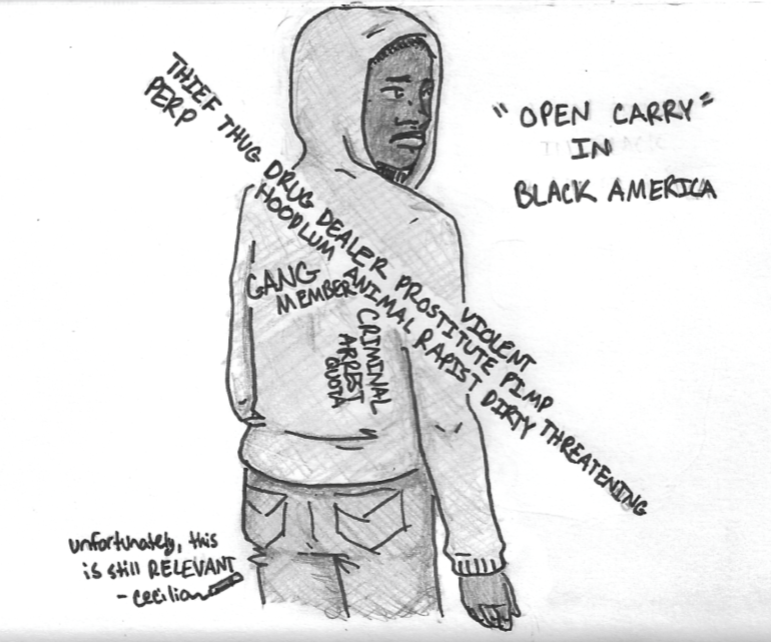 "OPEN CARRY"
IN
BLACK AMERICA
VIOLENT
THIEF THUG DRUG DEALER PROSTITUTE PIMP
PERP
HOODLUM ANIMAL RAPIST DIRTY THREATENING
GANG
MEMBER
CRIMINAL
ARREST
QUOTA
unfortunately, this
is still RELEVANT
- cecilia